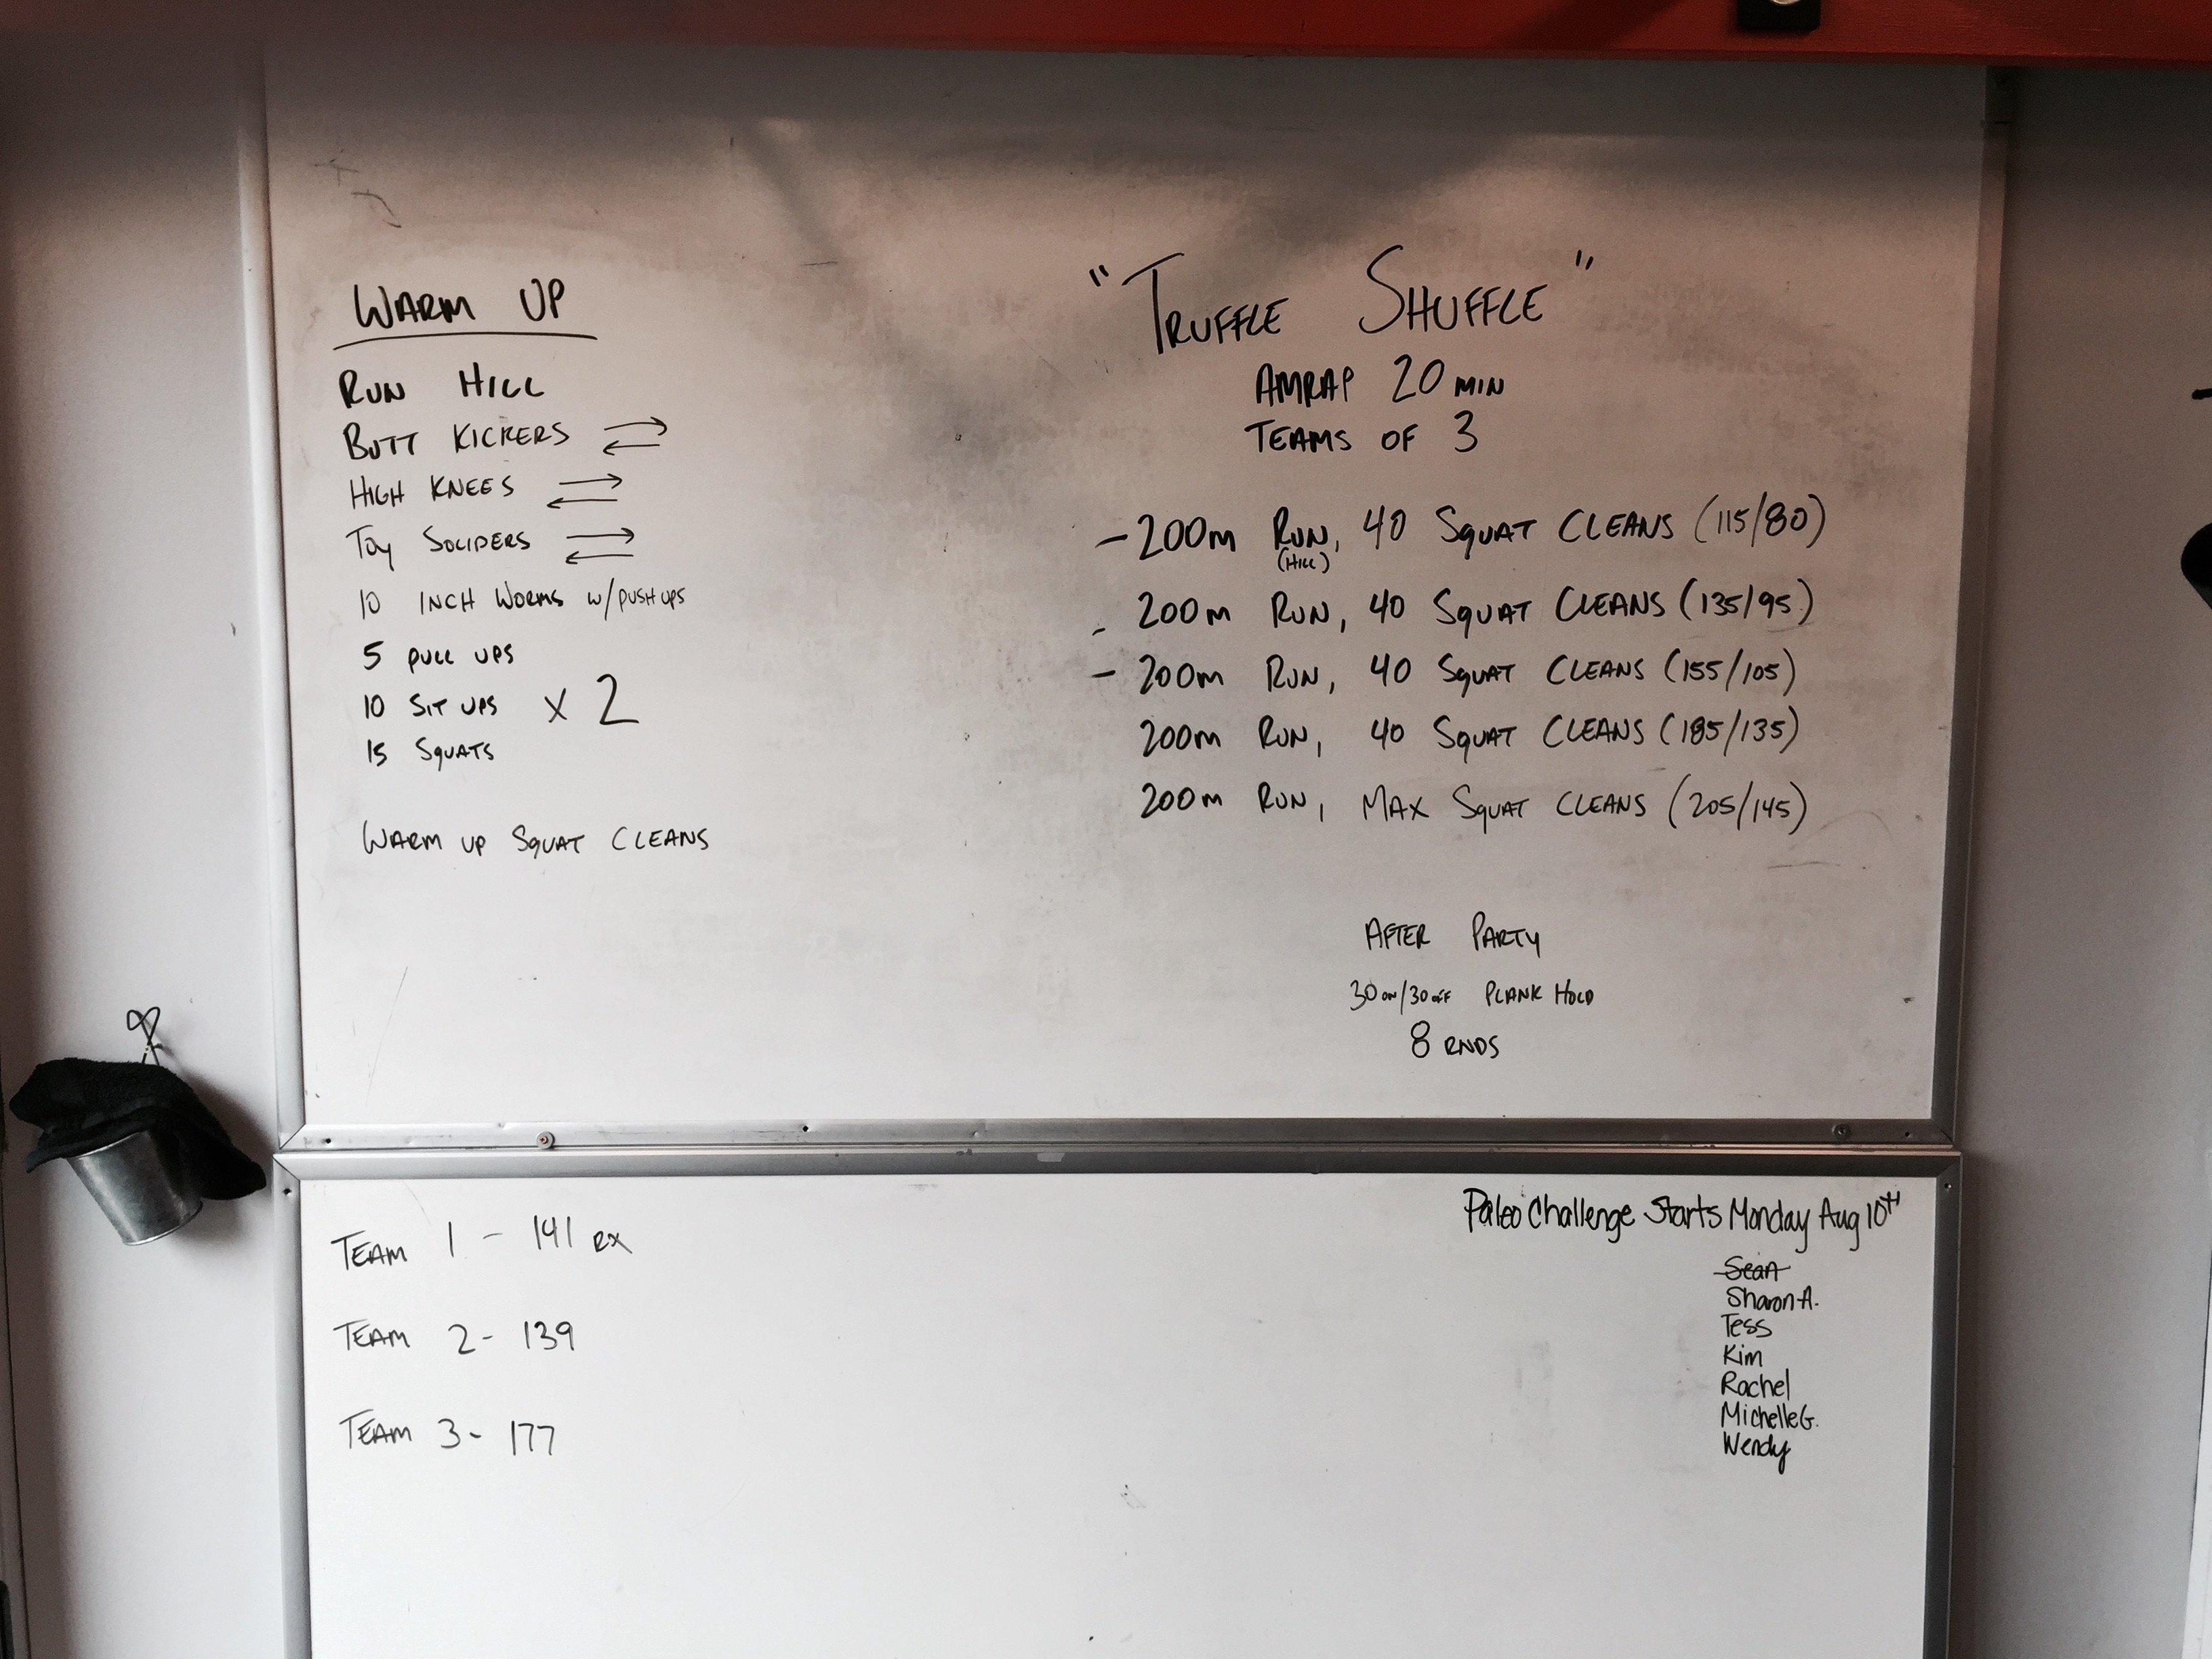 WARM UP
RUN HILL
BUTT KICKERS
HIGH KNEES
TOY SOLIDERS
10 INCH WORMS W/PUSH UPS
5 PULL UPS
10 SIT UPS X 2
15 SQUATS
WARM UP SQUAT CLEANS
"TRUFFLE SHUFFLE"
AMRAP 20 MIN
TEAMS OF 3
- 200m RUN, 40 SQUAT CLEANS (115/80)
(HILL)
- 200m RUN, 40 SQUAT CLEANS (135/95)
- 200m RUN, 40 SQUAT CLEANS (155/105)
200m RUN, 40 SQUAT CLEANS (185/135)
200m RUN, MAX SQUAT CLEANS (205/145)
AFTER PARTY
30 ON/30 OFF PLANK HOLD
8 RNDS
TEAM 1 - 141 RX
TEAM 2 - 139
TEAM 3 - 177
Paleo Challenge Starts Monday Aug 10TH
Sean
Sharon A.
Tess
Kim
Rachel
Michelle G.
Wendy